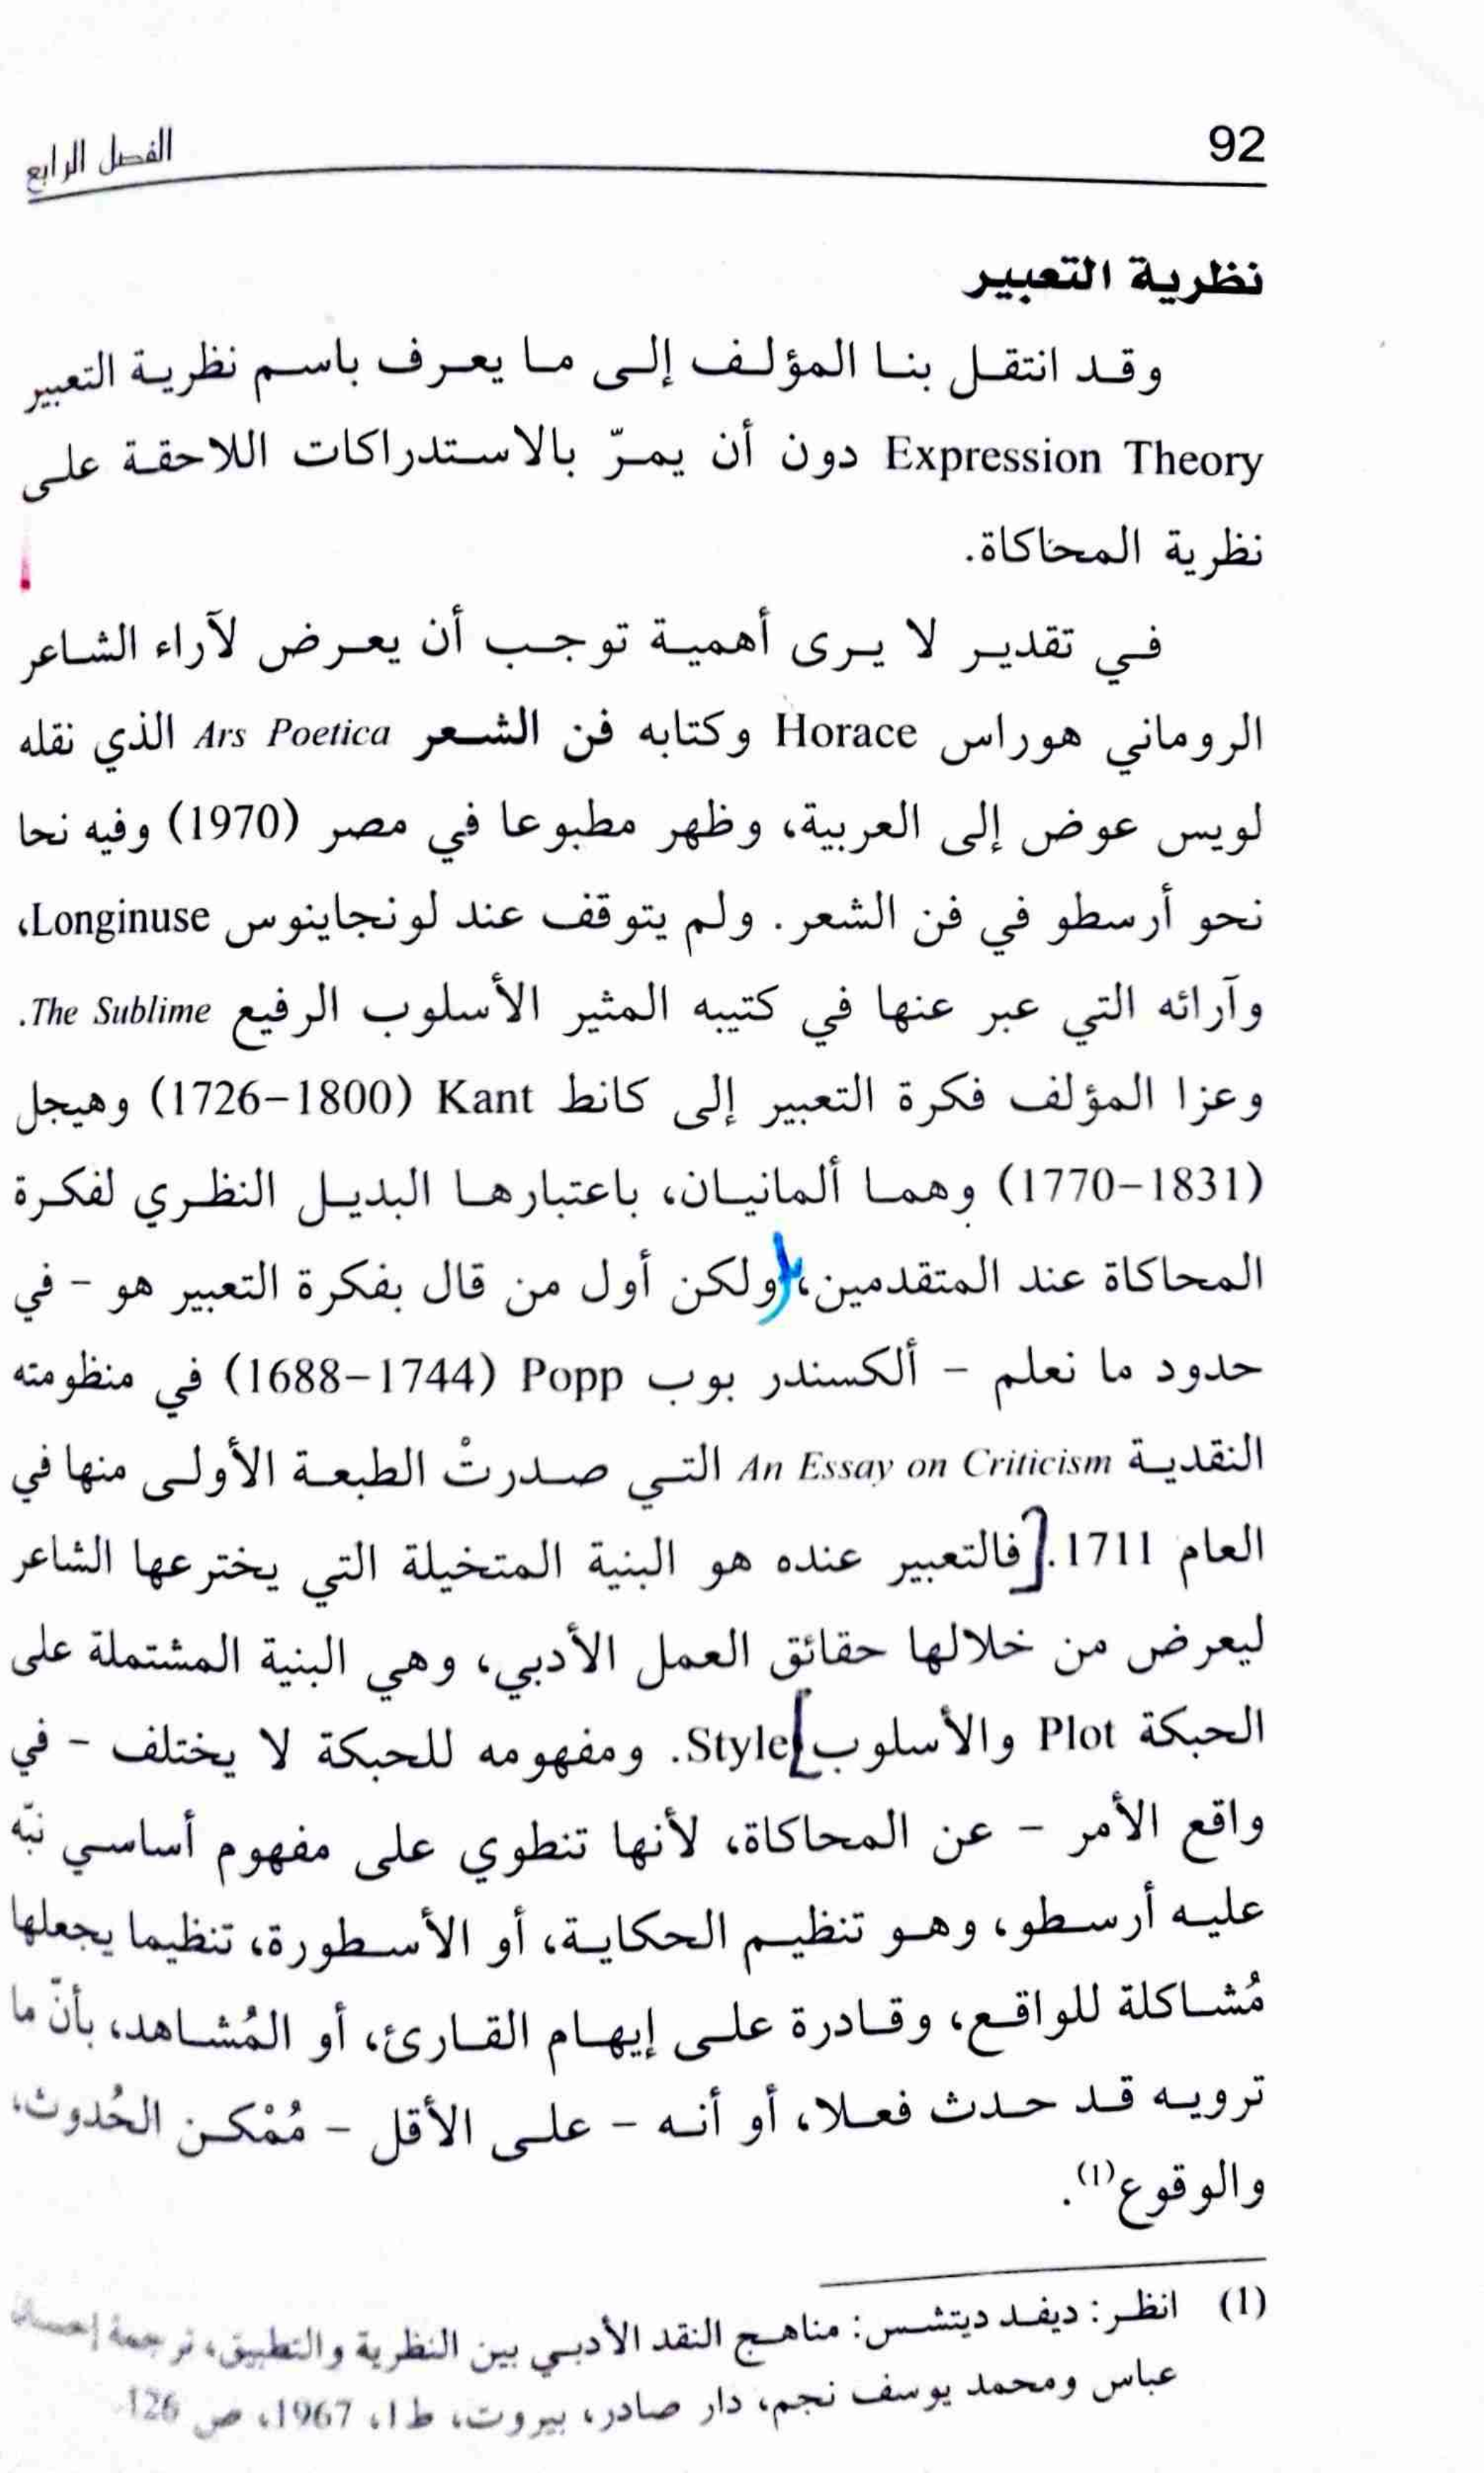 92
الفصل الرابع
نظرية التعبير
وقد انتقل بنا المؤلف إلى ما يعرف باسم نظرية التعبير
Expression Theory دون أن يمرّ بالاستدراكات اللاحقة على
نظرية المحاكاة.
في تقدير لا يرى أهمية توجب أن يعرض لآراء الشاعر
الروماني هوراس Horace وكتابه فن الشعر Ars Poetica الذي نقله
لويس عوض إلى العربية، وظهر مطبوعا في مصر (1970) وفيه نحا
نحو أرسطو في فن الشعر. ولم يتوقف عند لونجاينوس Longinuse،
وآرائه التي عبر عنها في كتيبه المثير الأسلوب الرفيع The Sublime.
وعزا المؤلف فكرة التعبير إلى كانط Kant (1726-1800) وهيجل
(1770-1831) وهما ألمانيان، باعتبارها البديل النظري لفكرة
المحاكاة عند المتقدمين، ولكن أول من قال بفكرة التعبير هو - في
حدود ما نعلم - ألكسندر بوب Popp (1688-1744) في منظومته
النقدية An Essay on Criticism التي صدرتْ الطبعة الأولى منها في
العام 1711. [فالتعبير عنده هو البنية المتخيلة التي يخترعها الشاعر
ليعرض من خلالها حقائق العمل الأدبي، وهي البنية المشتملة على
الحبكة Plot والأسلوب] Style. ومفهومه للحبكة لا يختلف - في
واقع الأمر - عن المحاكاة، لأنها تنطوي على مفهوم أساسي نبّه
عليه أرسطو، وهو تنظيم الحكاية، أو الأسطورة، تنظيما يجعلها
مُشاكلة للواقع، وقادرة على إيهام القارئ، أو المُشاهد، بأنّ ما
ترويه قد حدث فعلا، أو أنه - على الأقل - مُمْكن الحُدوث،
والوقوع(1).
(1) انظر: ديفد ديتشس: مناهج النقد الأدبي بين النظرية والتطبيق، ترجمة إحسان
عباس ومحمد يوسف نجم، دار صادر، بيروت، ط1، 1967، ص 126